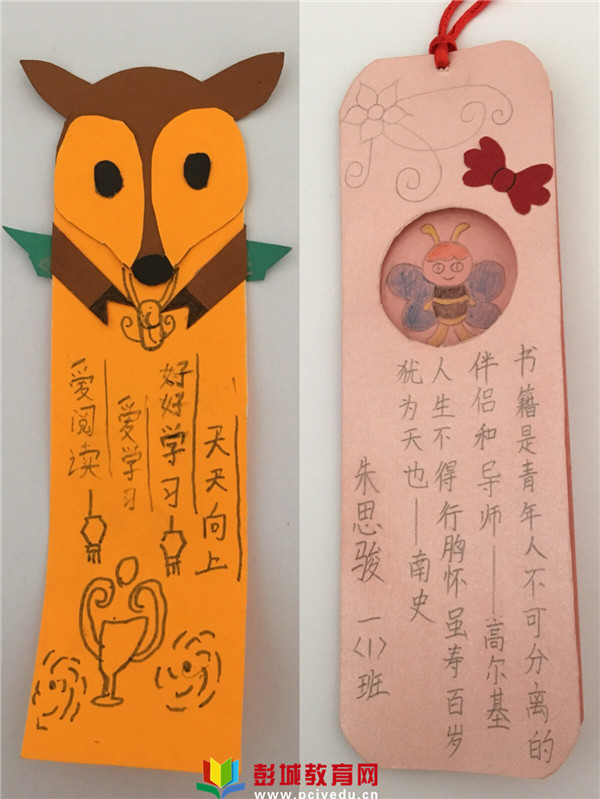 爱阅读
爱学习
好好学习
天天向上
书籍是青年人不可分离的
伴侣和导师——高尔基
人生不得行胸怀虽寿百岁
犹为天也——南史
朱思骏 一〈1〉班
彭城教育网
www.pcjyedu.cn